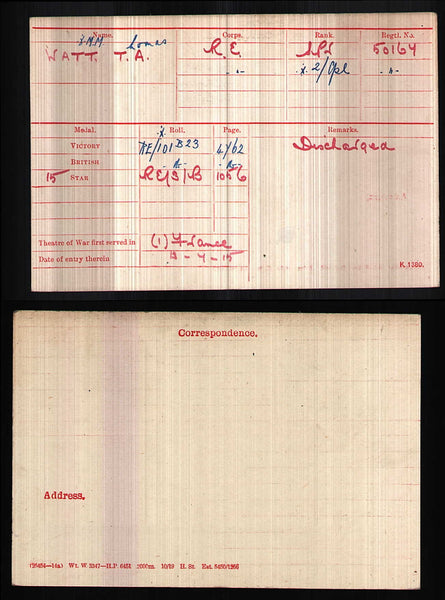 Name. Corps. Rank. Regtl. No.
x M.M Lomas
WATT. T.A. R.E. SPR 50164
-"- x 2/Cpl -"-
Medal. x Roll. Page. Remarks.
VICTORY RE/101 B23 4762 Discharged
BRITISH -"- -"-
15 STAR RE/5/B 1056
Theatre of War first served in (1) France
Date of entry therein -4-15
K.1380.
Correspondence.
Address.
(26454—14a) Wt. W 3347—H.P. 6451 2000m. 10/19 H. St. Est. 5450/1266